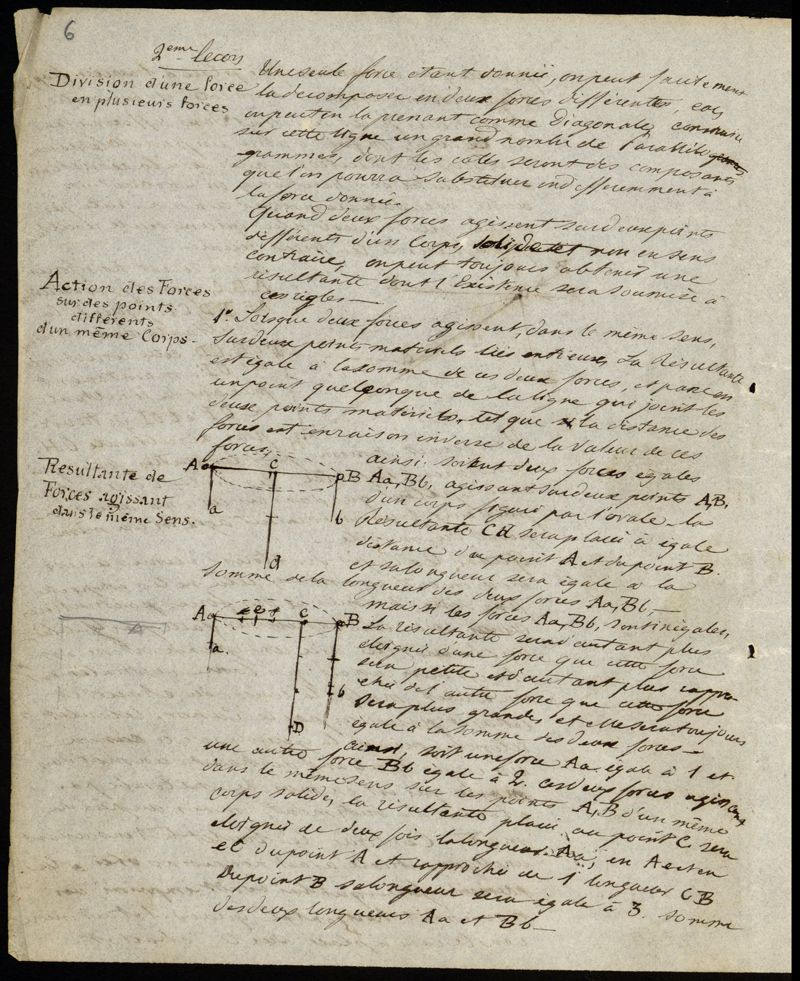 6
2eme lecon
Division d'une force
en plusieurs forces
Une seule force etant donnée, on peut facilement
la decomposer en deux forces différentes, car
on peut en la prenant comme Diagonale, construire
sur cette ligne un grand nombre de Parallelo
grammes, dont les cotés seront des composantes
que l'on pourra substituer indifféremment à
la force donnée.
Quand deux forces agissent sur deux points
différents d'un Corps, non en sens
contraire, on peut toujours obtenir une
résultante dont l'Existence sera soumise à
ces règles —
Action des Forces
sur des points
différents
d'un même Corps -
1° Lorsque deux forces agissent, dans le même sens,
sur deux points materiels liés entr'eux, La Résultante
est égale à la somme de ces deux forces, et passe en
un point quelconque de la ligne qui joint les
deux points matériels, tel que la distance des
forces est en raison inverse de la valeur de ces
forces,
Resultante de
Forces agissant
dans le même Sens.
A C B
a b
d
ainsi soient deux forces égales
Aa, Bb, agissant sur deux points A, B,
d'un corps figuré par l'ovale - la
Résultante Cd sera placée à égale
distance du point A et du point B.
et sa longueur sera égale a la
somme de la longueur des deux forces Aa, Bb, —
A e f C B
a b
D
mais si les forces Aa, Bb, sont inégales,
La résultante sera d'autant plus
éloignée d'une force que cette force
sera petite et d'autant plus rappro
chée de l'autre force que cette force
sera plus grande, et elle sera toujours
égale à la somme des deux forces —
ainsi, soit une force Aa égale à 1 et
une autre force Bb égale à 2. ces deux forces agissant
dans le même sens sur les points A, B d'un même
corps solide, la résultante placée au point C sera
eloignée de deux fois la longueur Aa, en A e et en
e C du point A et rapprochée de 1 longueur C B
Du point B sa longueur sera égale à 3. somme
des deux longueurs Aa et Bb —